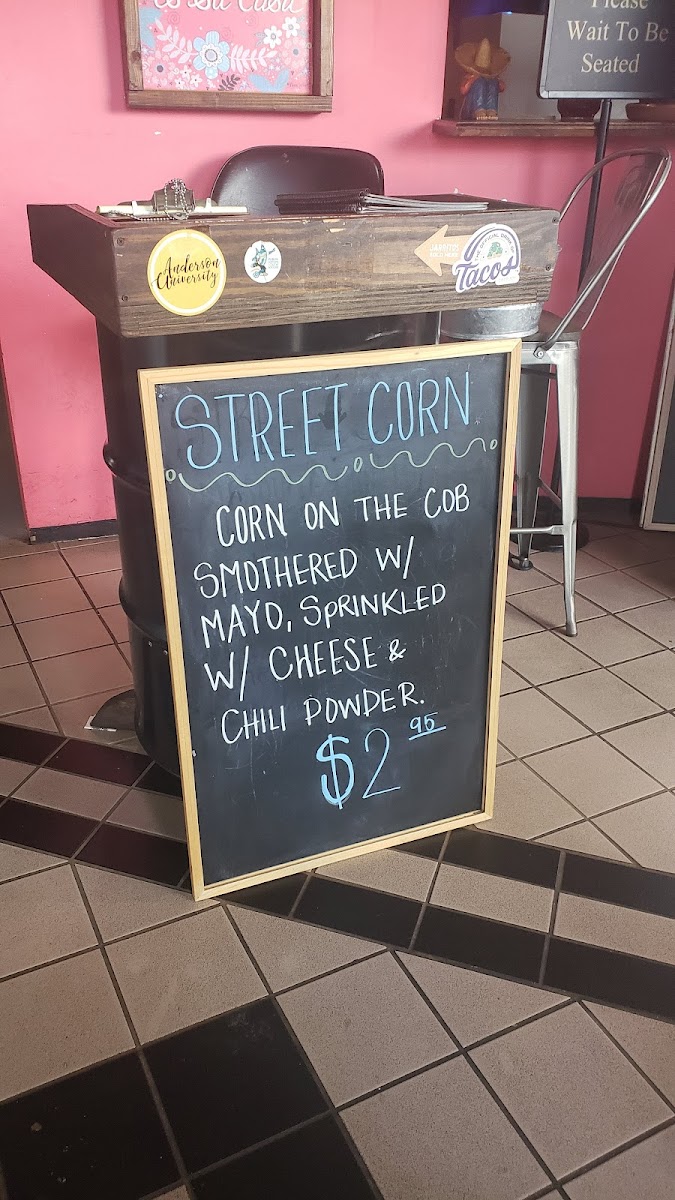 es Su Casa
Please
Wait To Be
Seated
Anderson
University
JARRITOS
THE OFFICIAL DRINK OF
Tacos
STREET CORN
CORN ON THE COB
SMOTHERED W/
MAYO, SPRINKLED
W/ CHEESE &
CHILI POWDER.
$2 95